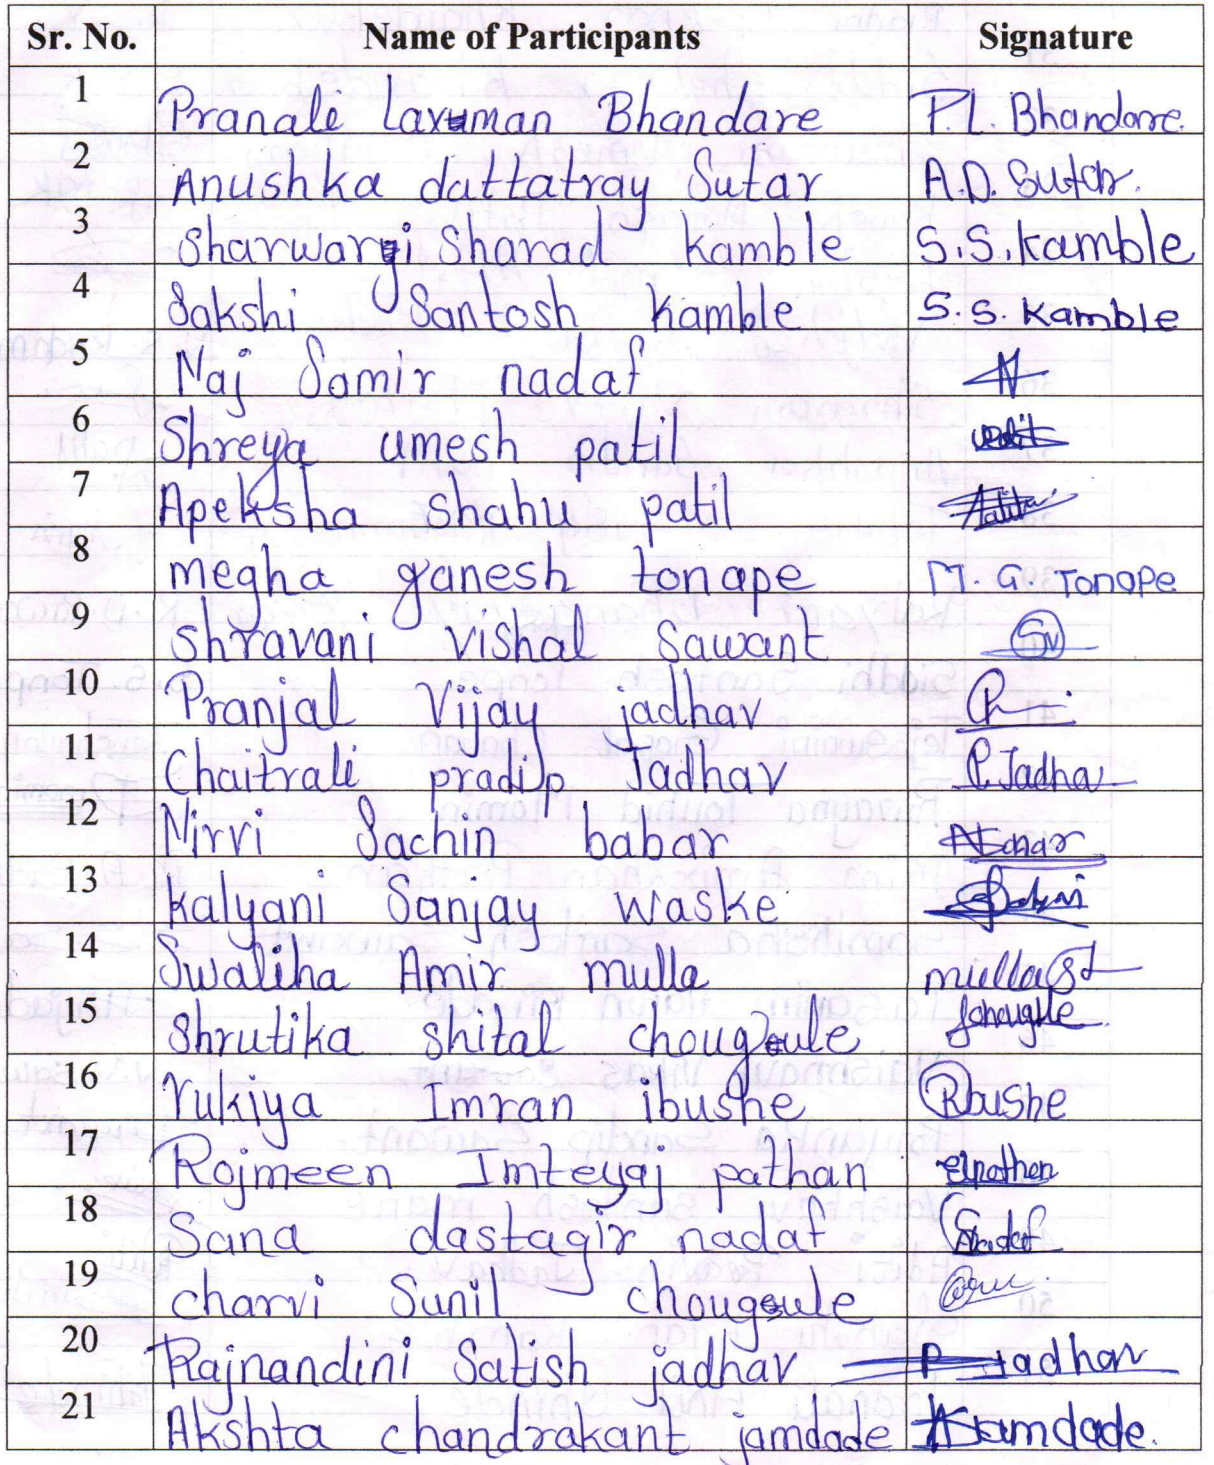 Sr. No. Name of Participants Signature
1 Pranali Laxuman Bhandare P. L. Bhandare.
2 Anushka dattatray Sutar A.D. Sutar.
3 Sharwaryi Sharad Kamble S.S. Kamble
4 Sakshi Santosh Kamble S.S. Kamble
5 Naj Samir nadaf
6 Shreya umesh patil
7 Apeksha shahu patil
8 megha ganesh tonape M. G. Tonape
9 Shravani vishal Sawant
10 Pranjal Vijay jadhav
11 Chaitrali pradip Jadhav
12 Nirvi Sachin babar
13 Kalyani Sanjay waske
14 Swaliha Amir mulla mulla
15 Shrutika shital chougule
16 rukiya Imran ibushe Rbushe
17 Rojmeen Imteyaj pathan
18 Sana dastagir nadaf
19 charvi Sunil chougule
20 Rajnandini Satish jadhav R Jadhav
21 Akshta chandrakant jamdade Jamdade.